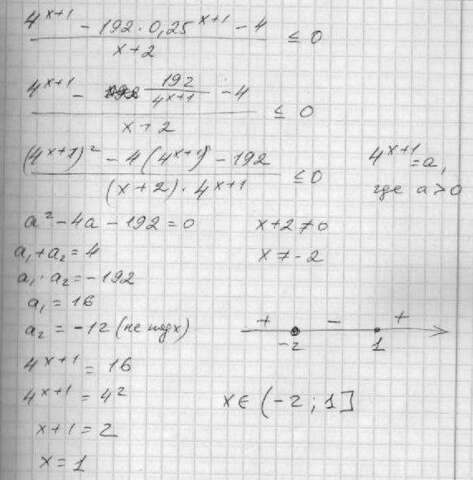 (4^(x+1) - 192 · 0,25^(x+1) - 4) / (x+2) ≤ 0
(4^(x+1) - 192/4^(x+1) - 4) / (x+2) ≤ 0
((4^(x+1))² - 4(4^(x+1)) - 192) / ((x+2) · 4^(x+1)) ≤ 0
4^(x+1) = a,
где a > 0
a² - 4a - 192 = 0
x+2 ≠ 0
a₁ + a₂ = 4
x ≠ -2
a₁ · a₂ = -192
a₁ = 16
a₂ = -12 (не подх)
+ - +
-2 1
4^(x+1) = 16
4^(x+1) = 4²
x ∈ (-2 ; 1]
x+1 = 2
x = 1